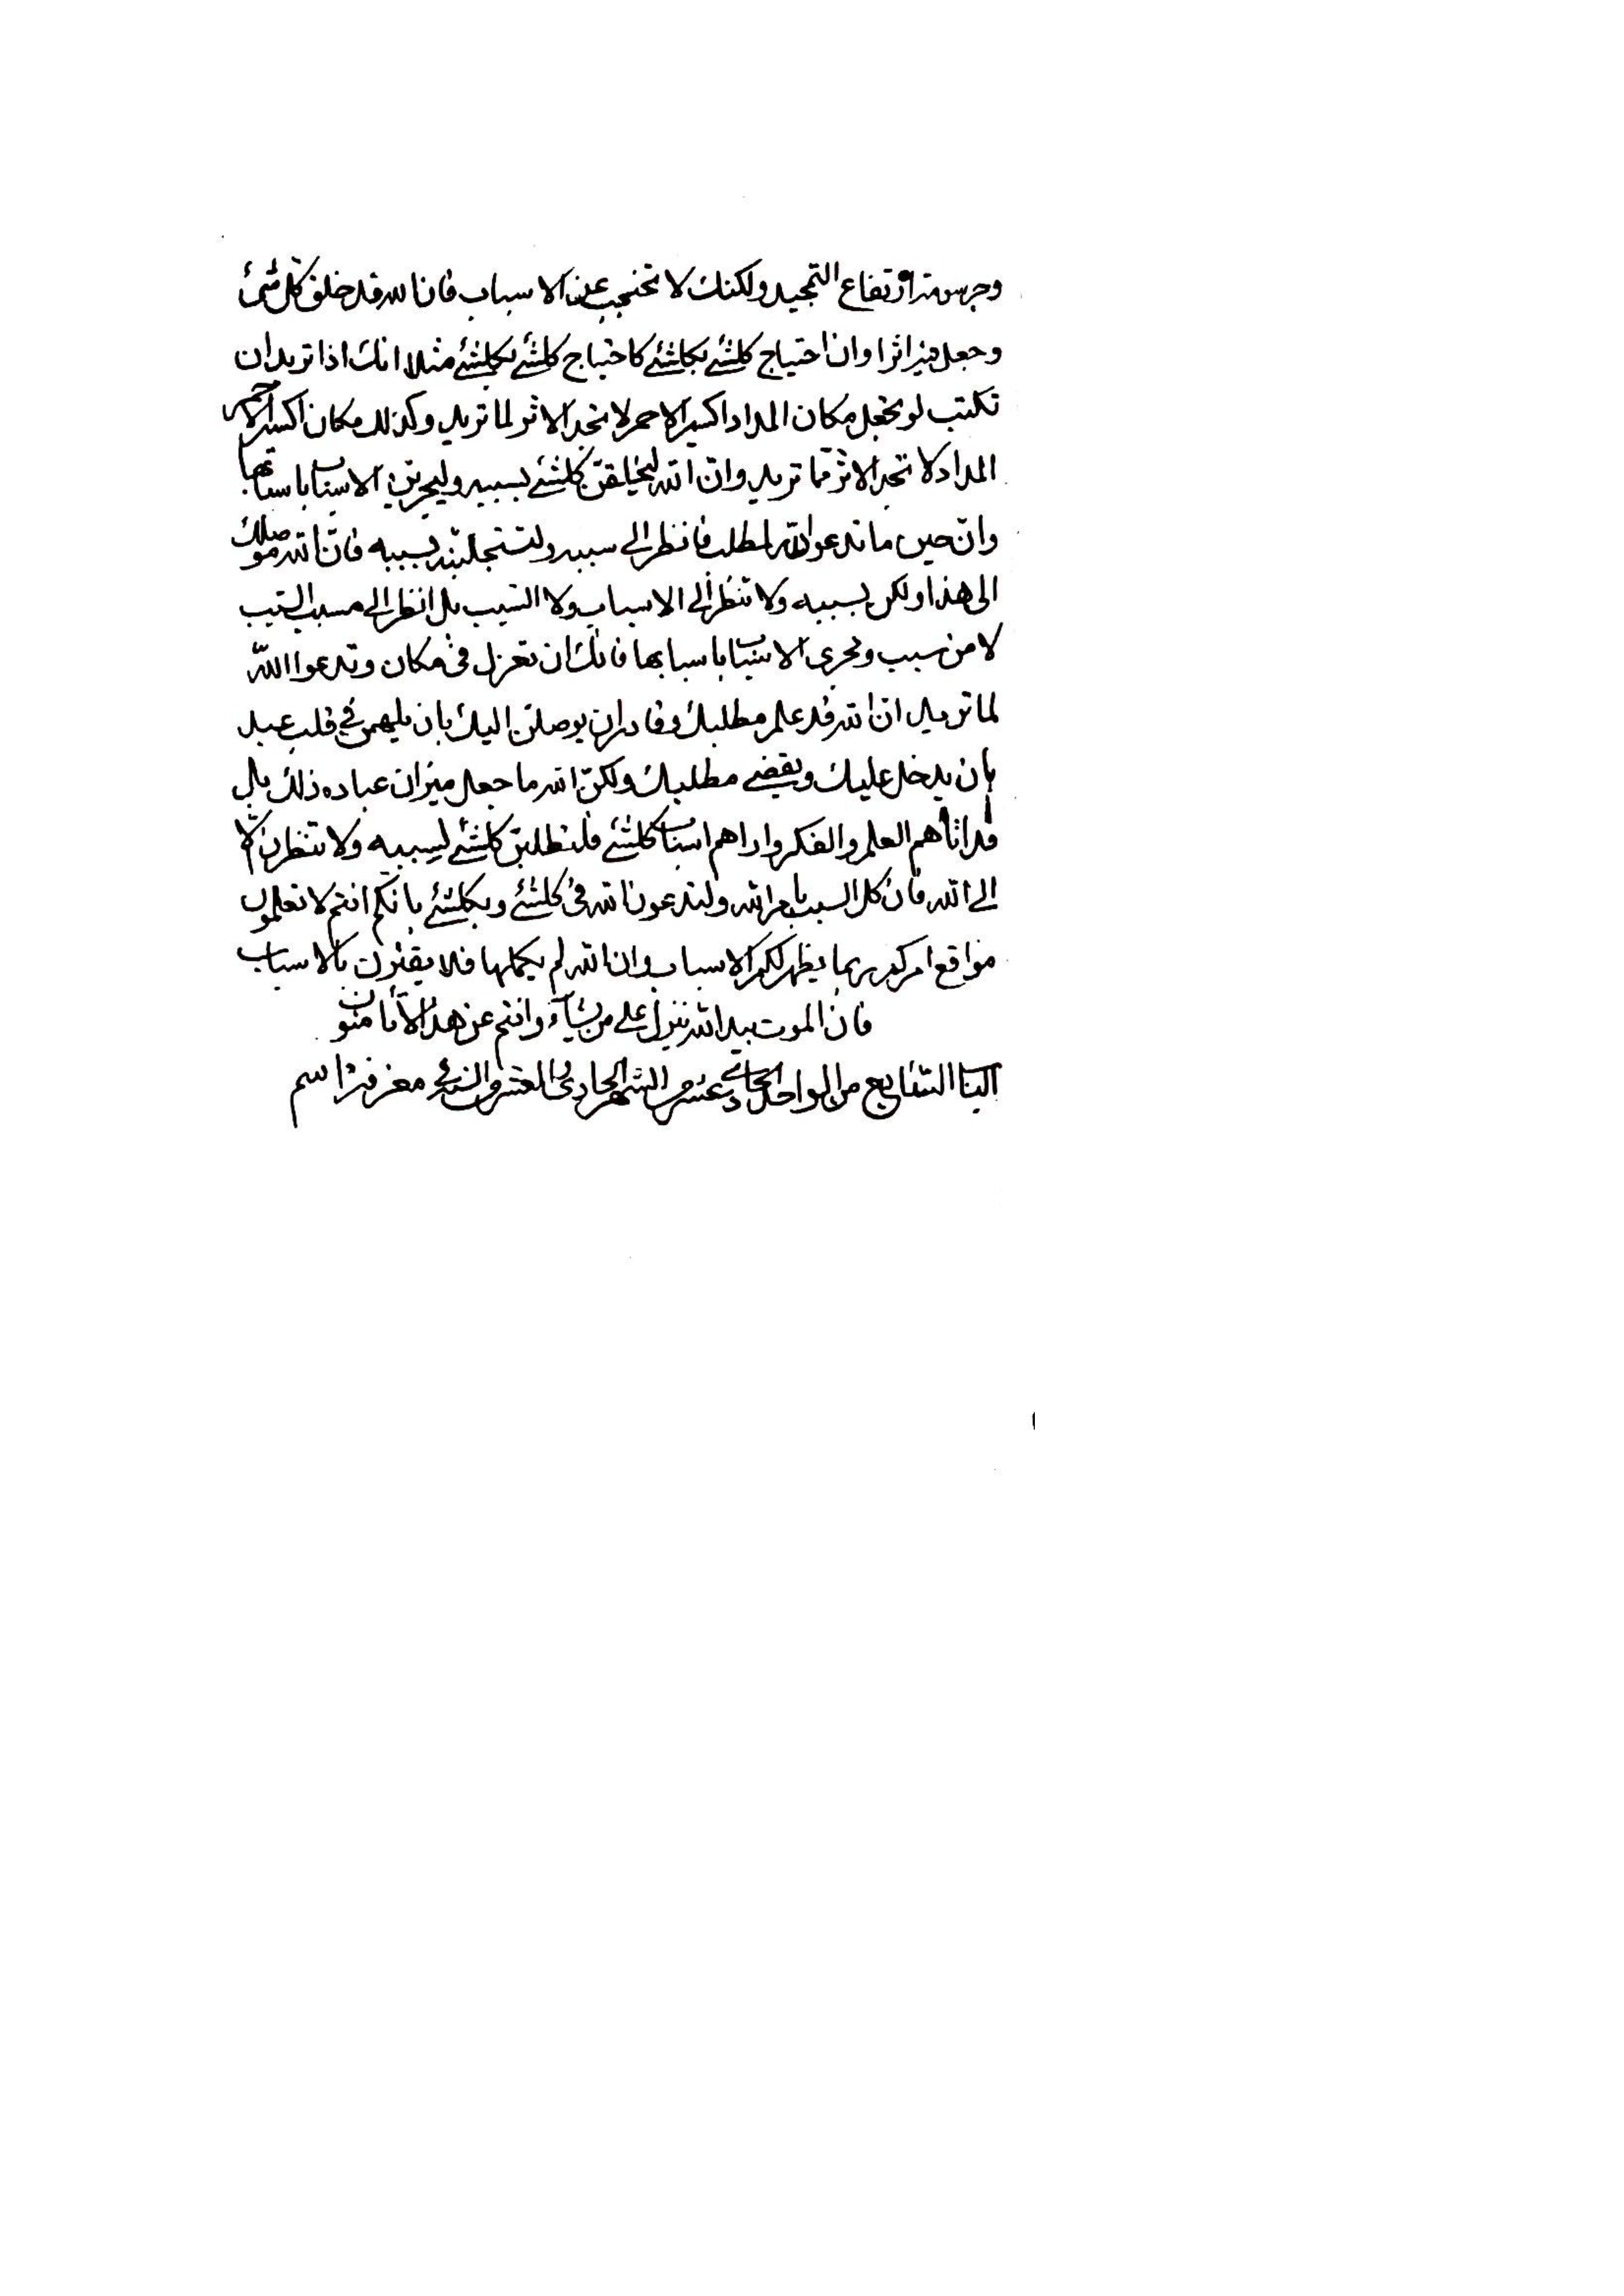 ارتفاع التمجيد ولكنك لا تحتجب عن الاسباب فان الله قد خلق كل شئ
وجعل فيه اثرا وان احتياج كلشئ بكلشئ كاحتياج كلشئ بكلشئ مثلا انك اذا تريد ان
تكتب لو تجعل مكان المداد اكسير الاحمر لا تجد الاثر لما تريد وكذلك مكان اكسير الاحمر
المداد لا تجد الاثر مما تريد وان الله ليخلقن كلشئ بسببه وليجرين الاسباب باسبابها
وان حين ما تدعو الله لمطلب فانظر الى سببه ولتستجلبنه بسببه فان الله موصلك
الى هذا ولكن بسببه ولا تنظر الى الاسباب ولا السبب بل انظر الى مسبب السبب
لا من سبب ومجرى الاسباب باسبابها فانك ان تعزل فى مكان وتدعوا الله
لما تريد ان الله قد علم مطلبك وقادر ان يوصلن اليك بان يلهمن في قلب عبد
بان يدخل عليك ويقضي مطلبك ولكن الله ما جعل ميزان عباده ذلك بل
قد اتاهم العلم والفكر واراهم اسباب كلشئ فلتطلبن كلشئ بسببه ولا تنظرن الا
الى الله فان كل السبب بامر الله ولتدعون الله فى كلشئ وبكلشئ بانكم انتم لا تعلمون
مواقع امركم ربما يظهر لكم الاسباب وان الله لم يكملها فلا بالاسباب
فان الموت بيد الله ينزل على من يشاء وانتم عن هذا لا تامنون
الباب السابع من الواحد الحادى عشر من الشهر الحادى العشر فى معرفة اسم